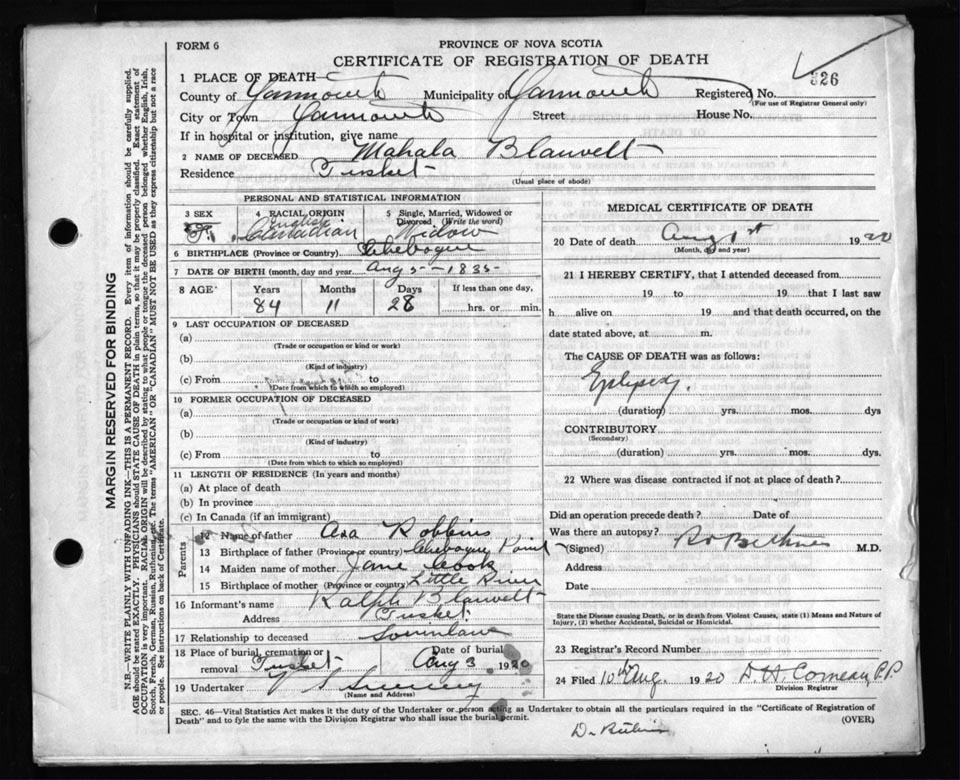 FORM 6
PROVINCE OF NOVA SCOTIA
CERTIFICATE OF REGISTRATION OF DEATH
326
1 PLACE OF DEATH
County of Yarmouth Municipality of Yarmouth Registered No.
(For use of Registrar General only)
City or Town Yarmouth Street House No.
If in hospital or institution, give name
2 NAME OF DECEASED Mahala Blauvelt
Residence Tusket
(Usual place of abode)
PERSONAL AND STATISTICAL INFORMATION
3 SEX F. 4 RACIAL ORIGIN English Canadian 5 Single, Married, Widowed or Divorced (Write the word) Widow
6 BIRTHPLACE (Province or Country) Chebogue
7 DATE OF BIRTH (month, day and year) Aug 5 - 1835
8 AGE Years Months Days If less than one day,
84 11 28 hrs. or min.
9 LAST OCCUPATION OF DECEASED
(a)
(Trade or occupation or kind or work)
(b)
(Kind of industry)
(c) From to
(Date from which to which so employed)
10 FORMER OCCUPATION OF DECEASED
(a)
(Trade or occupation or kind or work)
(b)
(Kind of industry)
(c) From to
(Date from which to which so employed)
11 LENGTH OF RESIDENCE (In years and months)
(a) At place of death
(b) In province
(c) In Canada (if an immigrant)
Parents
12 Name of father Asa Robbins
13 Birthplace of father (Province or country) Chebogue Point
14 Maiden name of mother Jane Cook
15 Birthplace of mother (Province or country) Little River
16 Informant's name Ralph Blauvelt
Address Tusket
17 Relationship to deceased Soninlaw
18 Place of burial, cremation or removal Tusket Date of burial Aug 3 1920
19 Undertaker
(Name and Address)
MEDICAL CERTIFICATE OF DEATH
20 Date of death Aug 1st 1920
(Month, day and year)
21 I HEREBY CERTIFY, that I attended deceased from
19 to 19 that I last saw
h alive on 19 and that death occurred, on the
date stated above, at m.
The CAUSE OF DEATH was as follows:
(duration) yrs. mos. dys
CONTRIBUTORY
(Secondary)
(duration) yrs. mos. dys.
22 Where was disease contracted if not at place of death?
Did an operation precede death? Date of
Was there an autopsy?
(Signed) M.D.
Address
Date
State the Disease causing Death, or in death from Violent Causes, state (1) Means and Nature of
Injury, (2) whether Accidental, Suicidal or Homicidal.
23 Registrar's Record Number
24 Filed 10th Aug. 1920 D. H. Comeau P.P.
Division Registrar
SEC. 46—Vital Statistics Act makes it the duty of the Undertaker or person acting as Undertaker to obtain all the particulars required in the "Certificate of Registration of
Death" and to fyle the same with the Division Registrar who shall issue the burial permit.
(OVER)
MARGIN RESERVED FOR BINDING
N.B.—WRITE PLAINLY WITH UNFADING INK—THIS IS A PERMANENT RECORD. Every item of information should be carefully supplied.
AGE should be stated EXACTLY. PHYSICIANS should STATE CAUSE OF DEATH in plain terms, so that it may be properly classified. Exact statement of
OCCUPATION is very important. RACIAL ORIGIN will be described by stating to what people or tongue the deceased person belonged whether English, Irish,
Scotch, French, German, Russian, Ruthenian, etc. The terms "AMERICAN" OR "CANADIAN" MUST NOT BE USED as they express citizenship but not a race
or people. See instructions on back of Certificate.